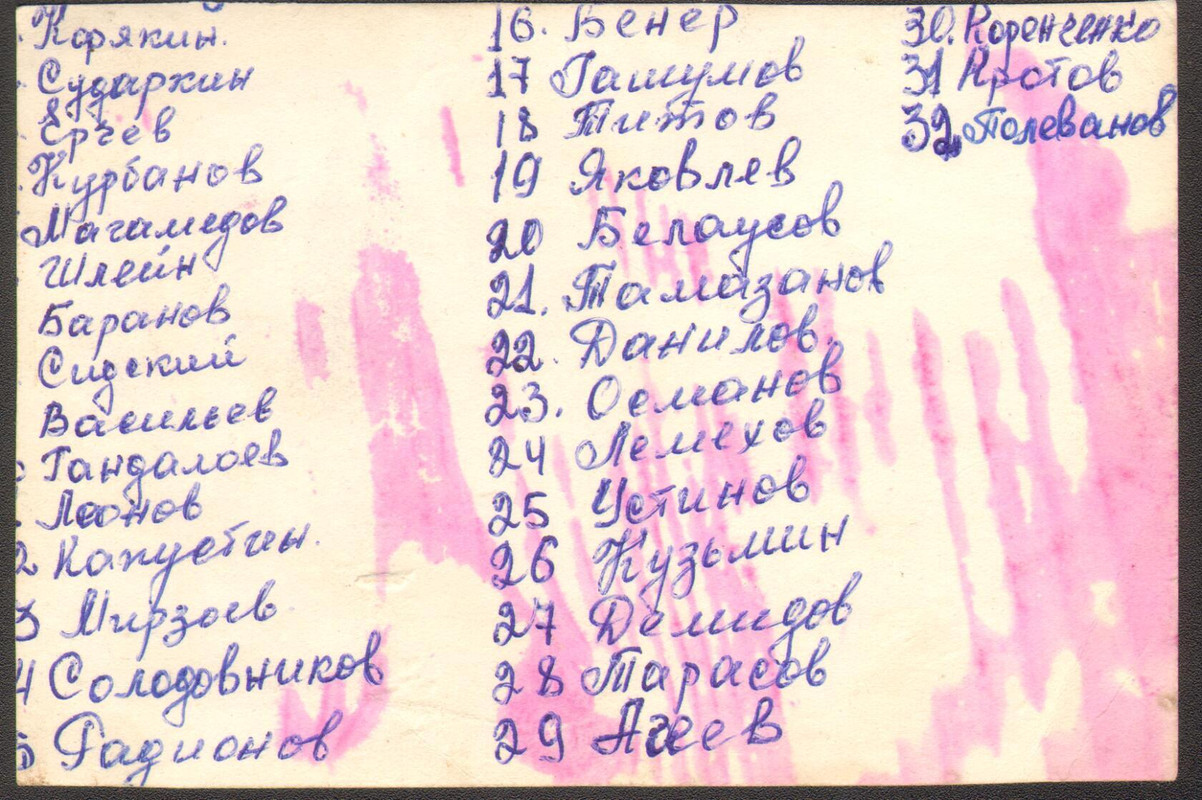 . Корякин.
. Сударкин
. Ергев
. Курбанов
. Магамедов
Шлейн
Баранов
Сидский
Васильев
Гандалоев
. Леонов
2 Капустин.
3 Мирзоев
4 Солодовников
5 Радионов
16. Бенер
17 Гашумов
18 Титов
19 Яковлев
20 Белаусов
21. Тамазанов
22. Данилов.
23. Османов
24 Лемехов
25 Устинов
26 Кузьмин
27 Демидов
28 Тарасов
29 Агеев
30. Коренченко
31 Кротов
32. Полеванов